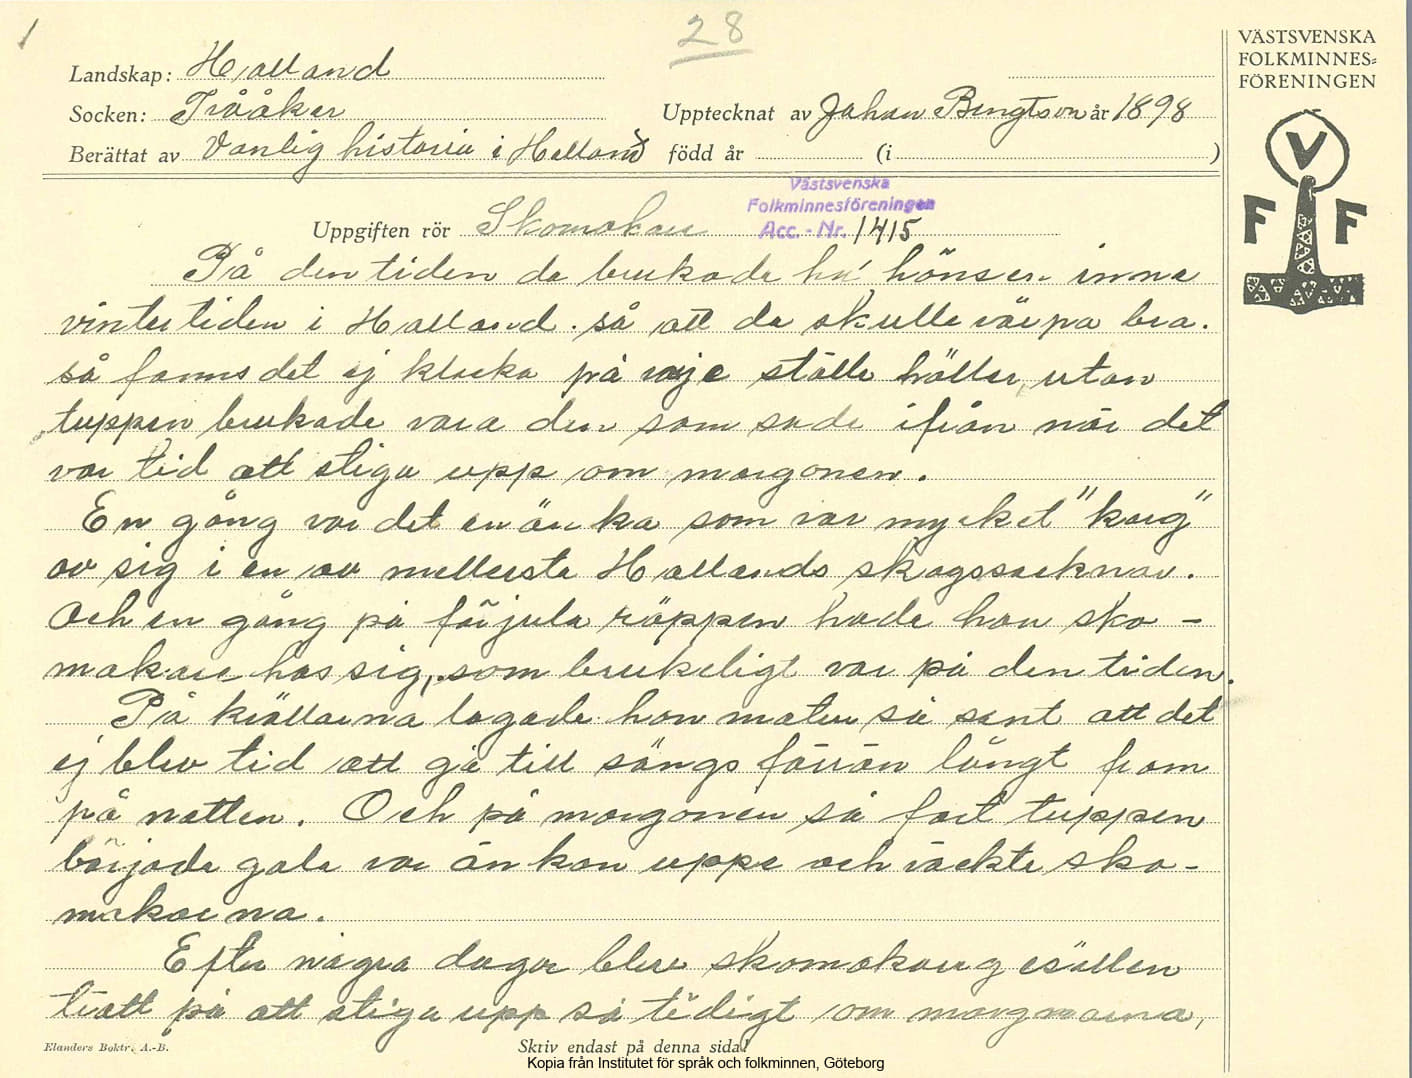 1
28
VÄSTSVENSKA
FOLKMINNES=
FÖRENINGEN
Landskap: Halland
Socken: Tvååker
Upptecknat av Johan Bengtson år 1898
Berättat av Vanlig historia i Halland född år (i )
V
F F
Västsvenska
Folkminnesföreningen
Acc. - Nr. 1415
Uppgiften rör Skomakare
På den tiden da brukade ha' hönsen inne
vintertiden i Halland. så att de skulle värpa bra.
så fanns det ej klocka på varje ställe håller, utan
tuppen brukade vara den som sade ifrån när det
var tid att stiga upp om morgonen.
En gång var det en änka som var mycket "karg"
av sig i en av mellersta Hallands skogssocknar.
Och en gång på förjula räppen hade hon sko-
makare hos sig, som brukeligt var på den tiden.
På kvällarna lagade hon maten så sent att det
ej blev tid att gå till sängs förrän långt fram
på natten. Och på morgonen så fort tuppen
började gala var änkan uppe och väckte sko-
makarna.
Efter några dagar blev skomakaregesällen
trött på att stiga upp så tidigt om morgnarna,
Elanders Boktr. A.-B.
Skriv endast på denna sida!
Kopia från Institutet för språk och folkminnen, Göteborg